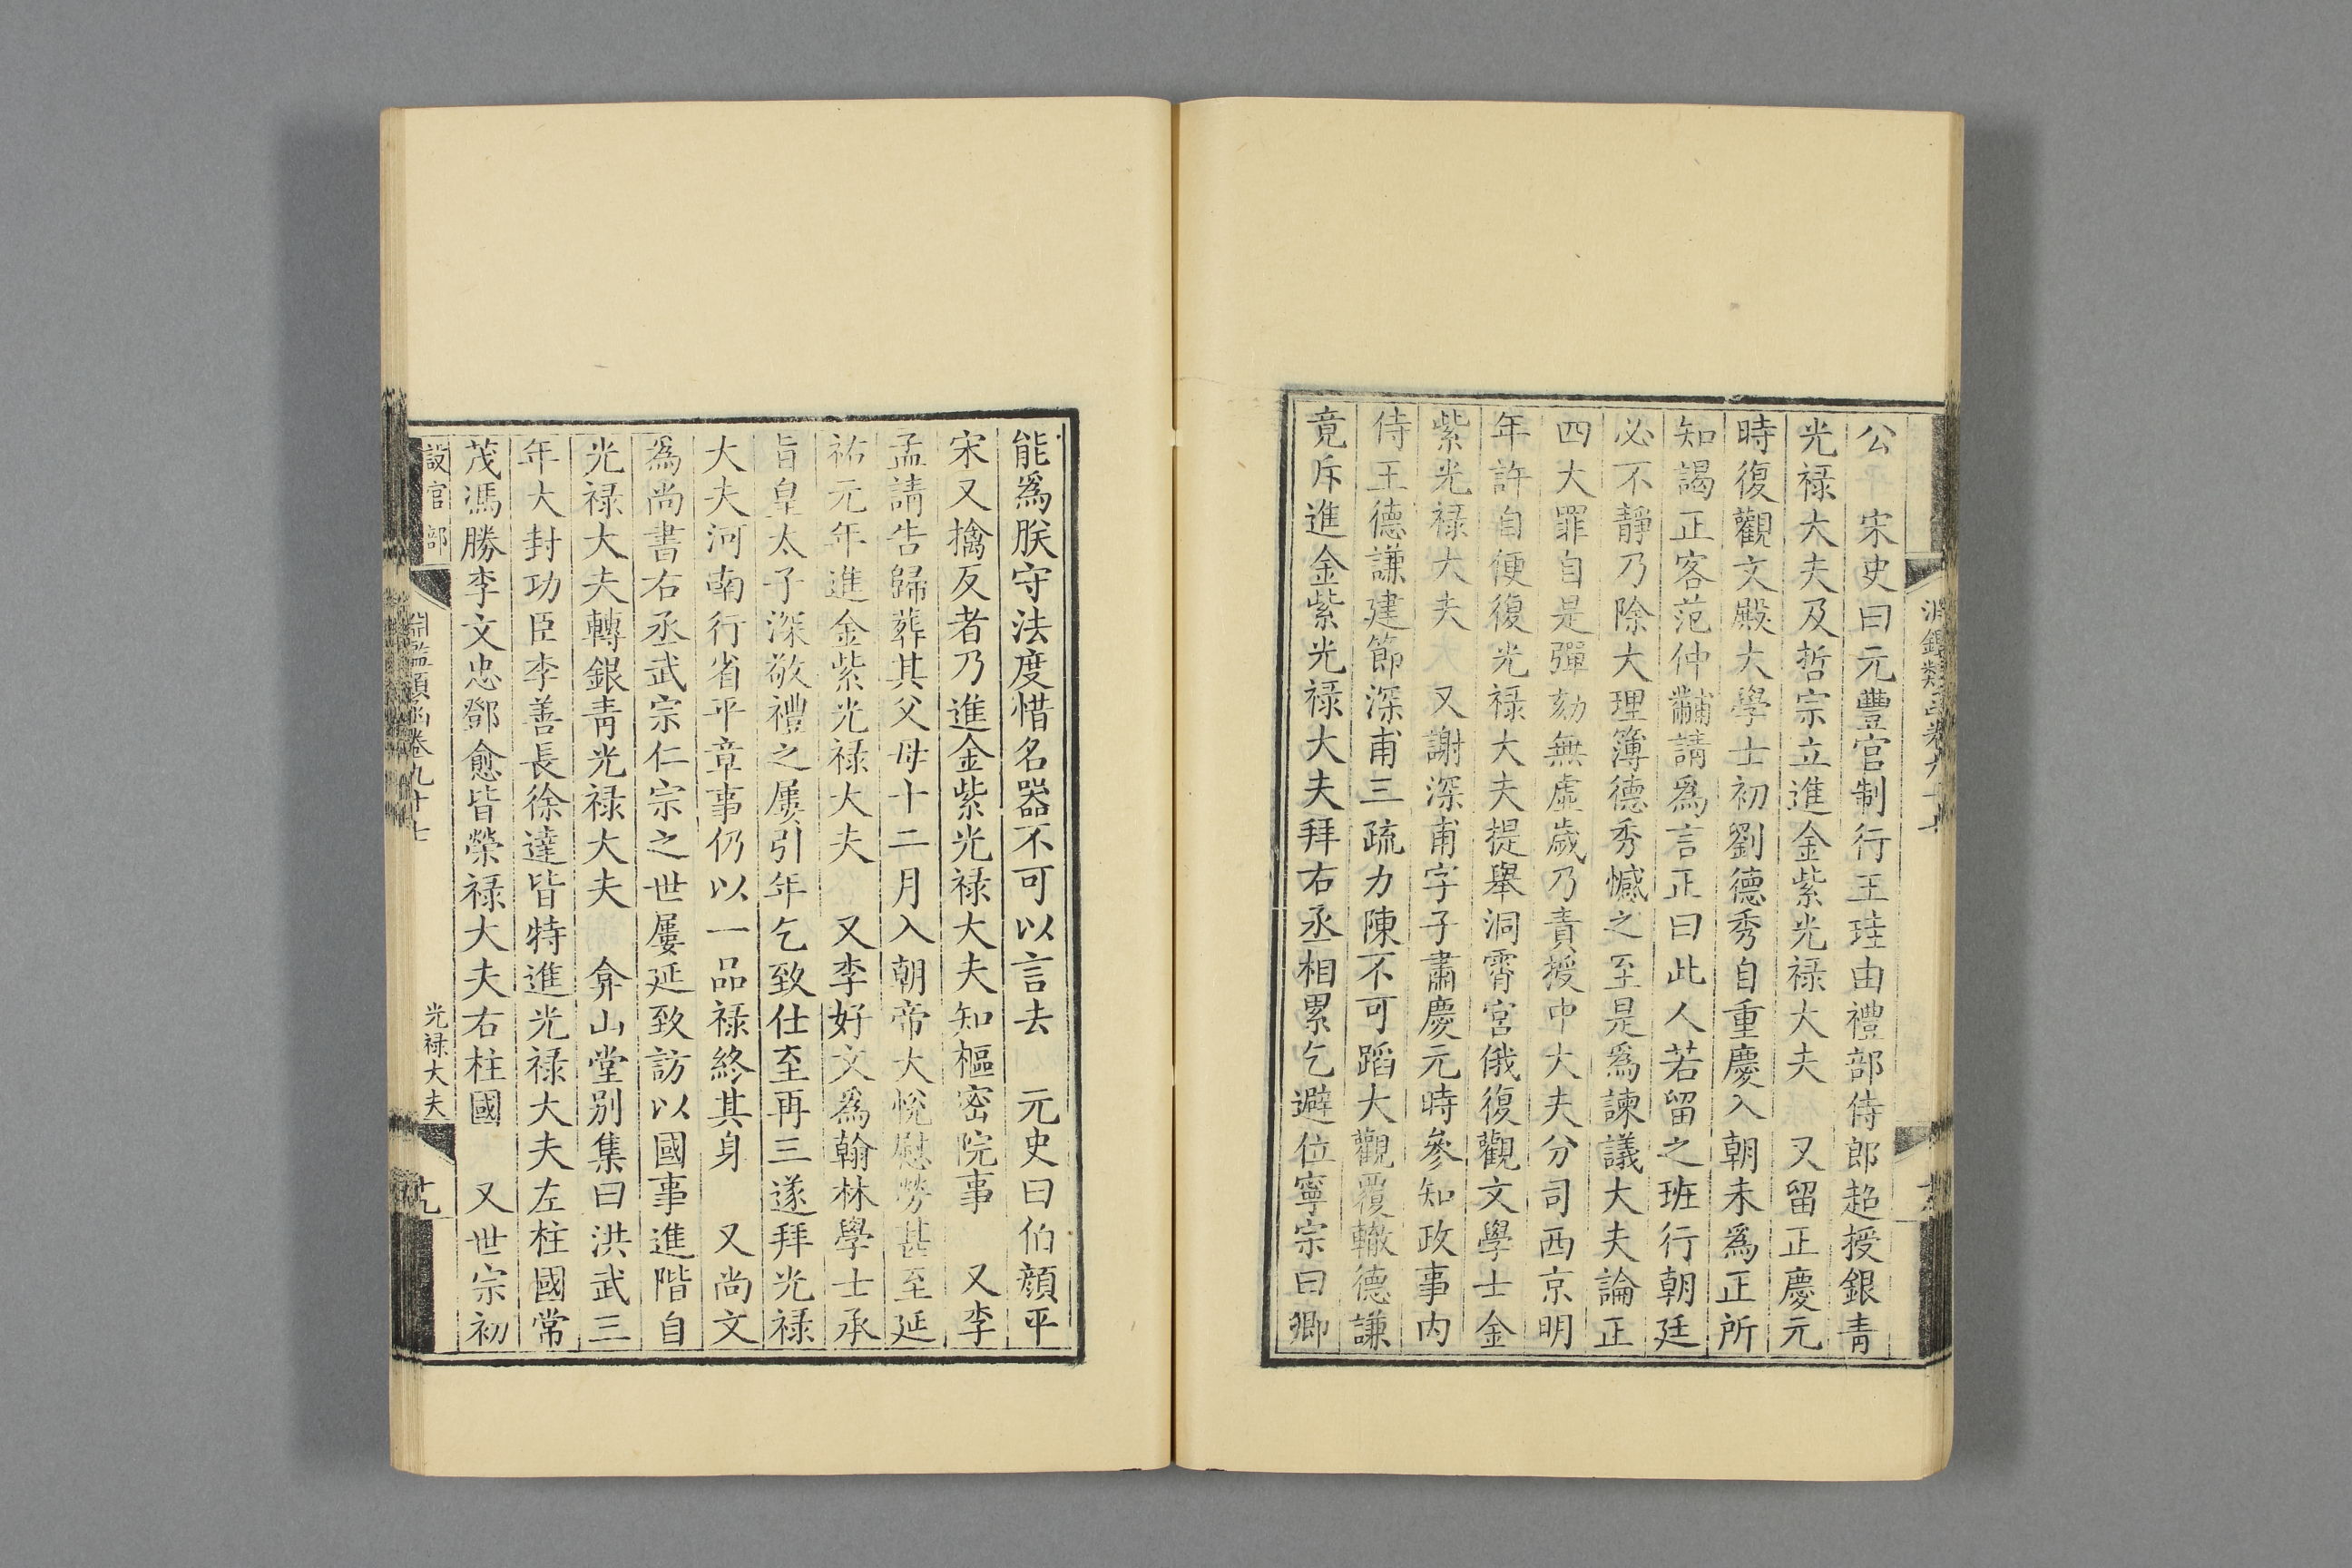 公　宋史曰元豐官制行王珪由禮部侍郎超授銀青
光禄大夫及哲宗立進金紫光禄大夫　又留正慶元
時復觀文殿大學士初劉德秀自重慶入朝未爲正所
知謁正客范仲黼請爲言正曰此人若留之班行朝廷
必不靜乃除大理簿德秀憾之至是爲諫議大夫論正
四大罪自是彈劾無虛歲乃責授中大夫分司西京明
年許自便復光禄大夫提舉洞霄宮俄復觀文學士金
紫光禄大夫　又謝深甫字子肅慶元時參知政事内
侍王德謙建節深甫三疏力陳不可蹈大觀覆轍德謙
竟斥進金紫光禄大夫拜右丞相累乞避位寧宗曰卿
能爲朕守法度惜名器不可以言去　元史曰伯顏平
宋又擒反者乃進金紫光禄大夫知樞密院事　又李
孟請告歸葬其父母十二月入朝帝大悅慰勞甚至延
祐元年進金紫光禄大夫　又李好文爲翰林學士承
旨皇太子深敬禮之屢引年乞致仕至再三遂拜光禄
大夫河南行省平章事仍以一品禄終其身　又尚文
爲尚書右丞武宗仁宗之世屢延致訪以國事進階自
光禄大夫轉銀青光禄大夫　弇山堂别集曰洪武三
年大封功臣李善長徐達皆特進光禄大夫左柱國常
茂馮勝李文忠鄧愈皆榮禄大夫右柱國　又世宗初
設官部　淵鑑類函卷九十七　光禄大夫　十九